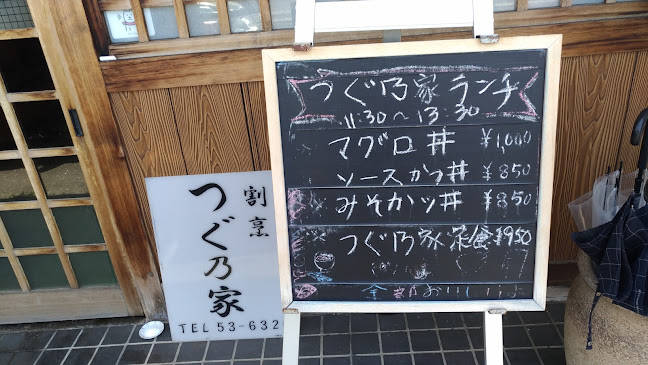 つぐ乃家ランチ
11:30〜13:30
マグロ丼 ¥1,000
ソースかつ丼 ¥850
みそかツ丼 ¥850
つぐ乃家定食 ¥950
割烹
つぐ乃家
TEL 53-632